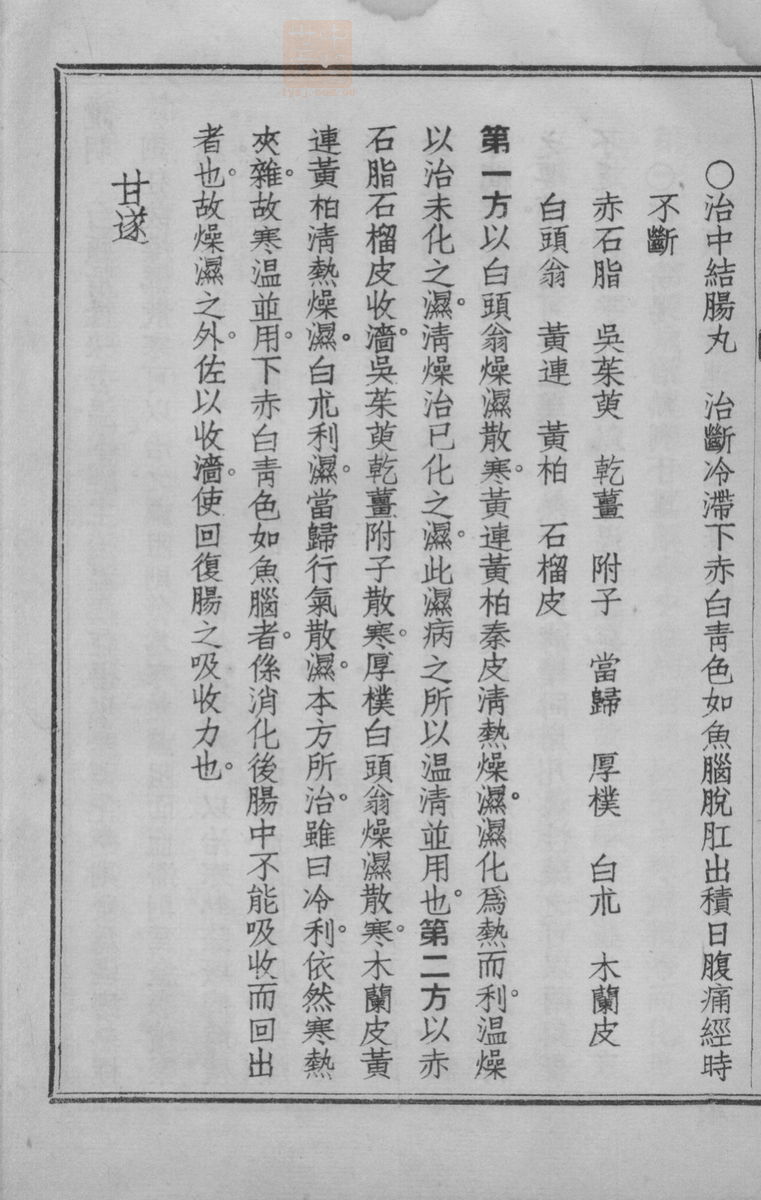 〇治中結腸丸　治斷冷滯下赤白青色如魚腦脫肛出積日腹痛經時
不斷
赤石脂　吳茱萸　乾薑　附子　當歸　厚樸　白朮　木蘭皮
白頭翁　黃連　黃柏　石榴皮
第一方以白頭翁燥濕散寒。黃連黃柏秦皮清熱燥濕。濕化爲熱而利。温燥
以治未化之濕。清燥治已化之濕。此濕病之所以温清並用也。第二方以赤
石脂石榴皮收濇。吳茱萸乾薑附子散寒。厚樸白頭翁燥濕散寒。木蘭皮黃
連黃柏清熱燥濕。白朮利濕。當歸行氣散濕。本方所治。雖曰冷利。依然寒熱
夾雜。故寒温並用。下赤白青色如魚腦者。係消化後腸中不能吸收而回出
者也。故燥濕之外。佐以收濇。使回復腸之吸收力也。
甘遂